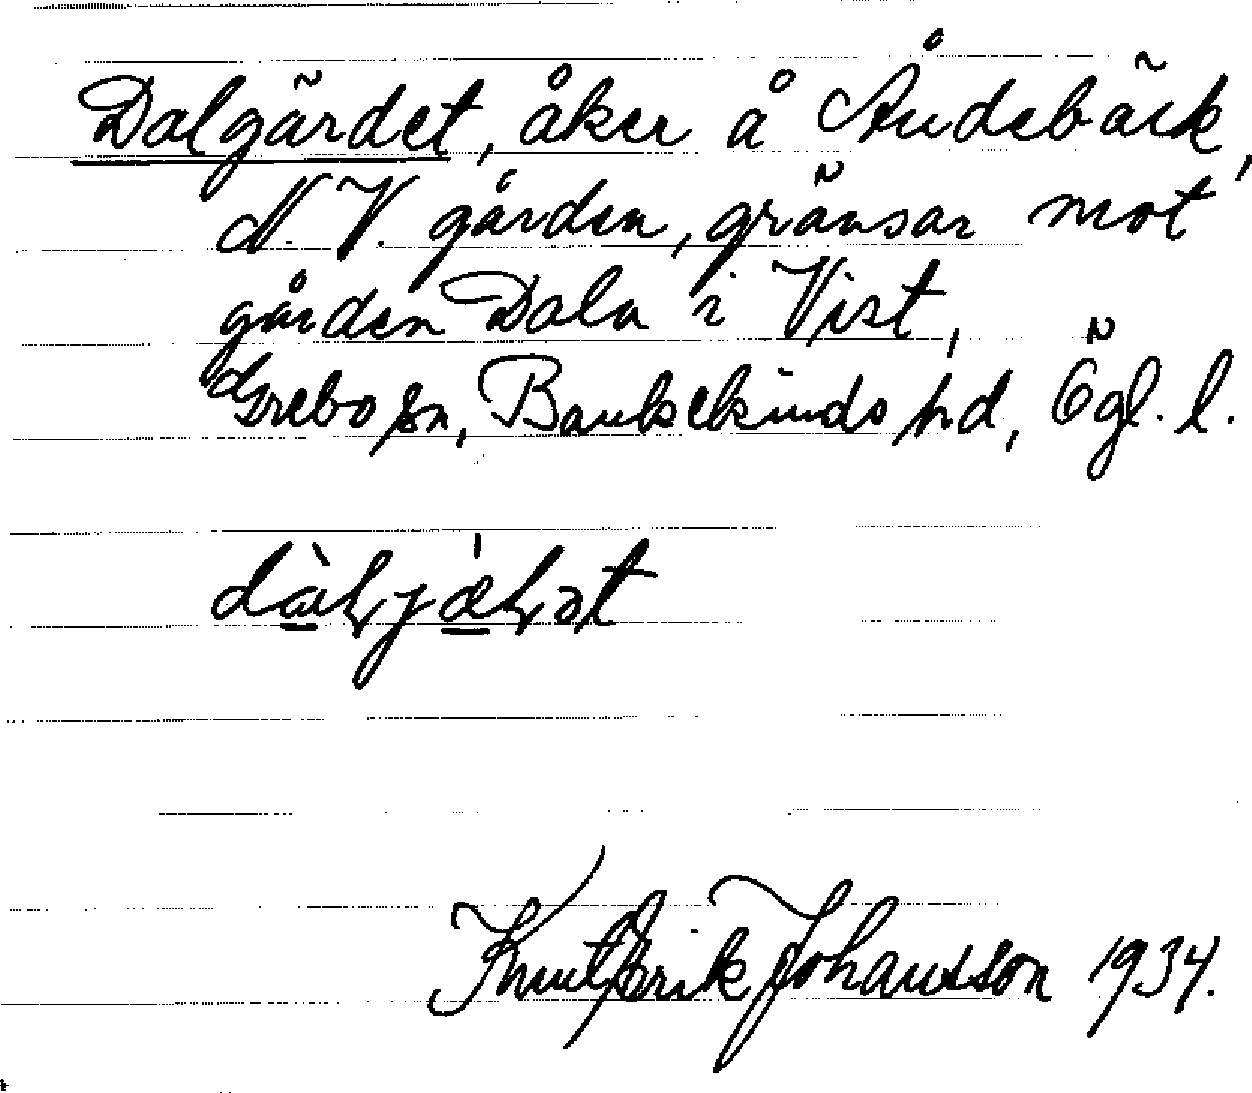 Dalgärdet, åker å Åndebäck,
N.V. gården, gränsar mot
gården Dala i Vist,
Grebo sn, Bankekinds hd, Ögl. l.
Knut Erik Johansson 1934.